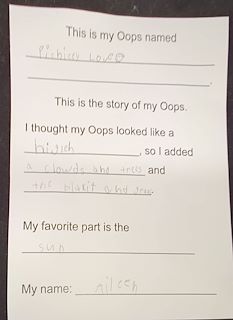 This is my Oops named
Love
This is the story of my Oops.
I thought my Oops looked like a
, so I added
a clowds and trees and
the and
My favorite part is the
sun
My name: Aileen